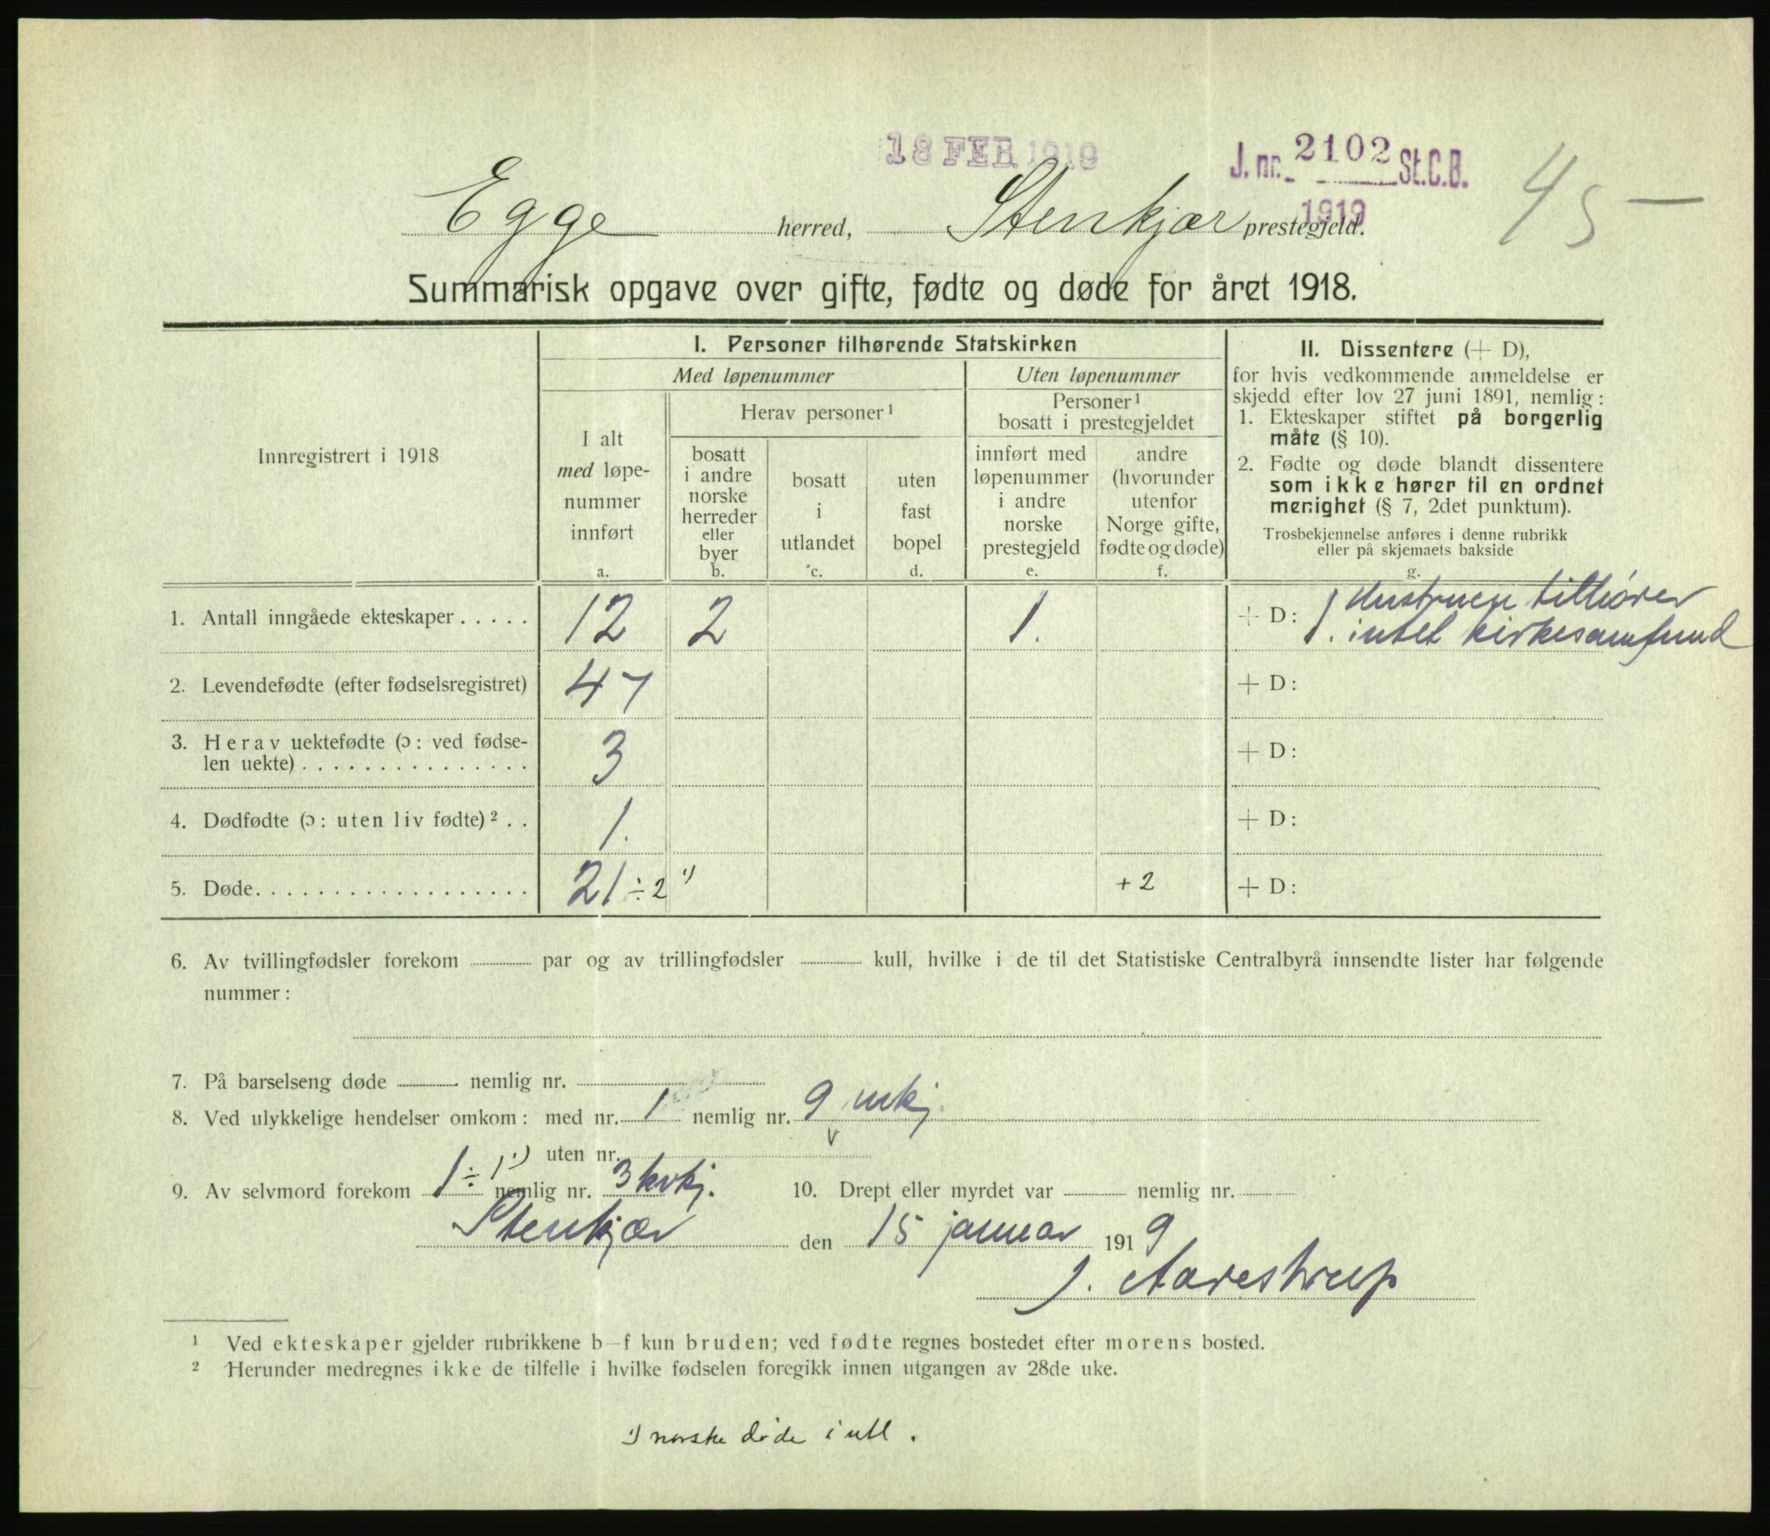 18 FEB 1919
J. nr. 2102 St.C.B.
1919
45 —
Egge herred, Stenkjær prestegjeld.
Summarisk opgave over gifte, fødte og døde for året 1918.
Innregistrert i 1918
I. Personer tilhørende Statskirken
Med løpenummer
Uten løpenummer
I alt
med løpe-
nummer
innført
a.
Herav personer ¹
bosatt
i andre
norske
herreder
eller
byer
b.
bosatt
i
utlandet
c.
uten
fast
bopel
d.
Personer ¹
bosatt i prestegjeldet
innført med
løpenummer
i andre
norske
prestegjeld
e.
andre
(hvorunder
utenfor
Norge gifte,
fødte og døde)
f.
II. Dissentere (+ D),
for hvis vedkommende anmeldelse er
skjedd efter lov 27 juni 1891, nemlig:
1. Ekteskaper stiftet på borgerlig
måte (§ 10).
2. Fødte og døde blandt dissentere
som ikke hører til en ordnet
menighet (§ 7, 2det punktum).
Trosbekjennelse anføres i denne rubrikk
eller på skjemaets bakside
g.
1. Antall inngåede ekteskaper . . . . . 12 2 1. + D: 1. Hustruen tilhører
intet kirkesamfund
2. Levendefødte (efter fødselsregistret) 47 + D:
3. Herav uektefødte (ɔ: ved fødse-
len uekte) . . . . . . . . . . . . . . . 3 + D:
4. Dødfødte (ɔ: uten liv fødte) ² . . 1. + D:
5. Døde. . . . . . . . . . . . . . . . . . 21 ÷ 2 ¹) + 2 + D:
6. Av tvillingfødsler forekom par og av trillingfødsler kull, hvilke i de til det Statistiske Centralbyrå innsendte lister har følgende
nummer:
7. På barselseng døde nemlig nr.
8. Ved ulykkelige hendelser omkom: med nr. 1 nemlig nr. 9 mkj.
uten nr.
9. Av selvmord forekom 1 ÷ 1 ¹) nemlig nr. 3 kvkj. 10. Drept eller myrdet var nemlig nr.
Stenkjær den 15 januar 1919
J. Aarestrup
¹ Ved ekteskaper gjelder rubrikkene b—f kun bruden; ved fødte regnes bostedet efter morens bosted.
² Herunder medregnes ikke de tilfelle i hvilke fødselen foregikk innen utgangen av 28de uke.
¹) norske døde i utl.